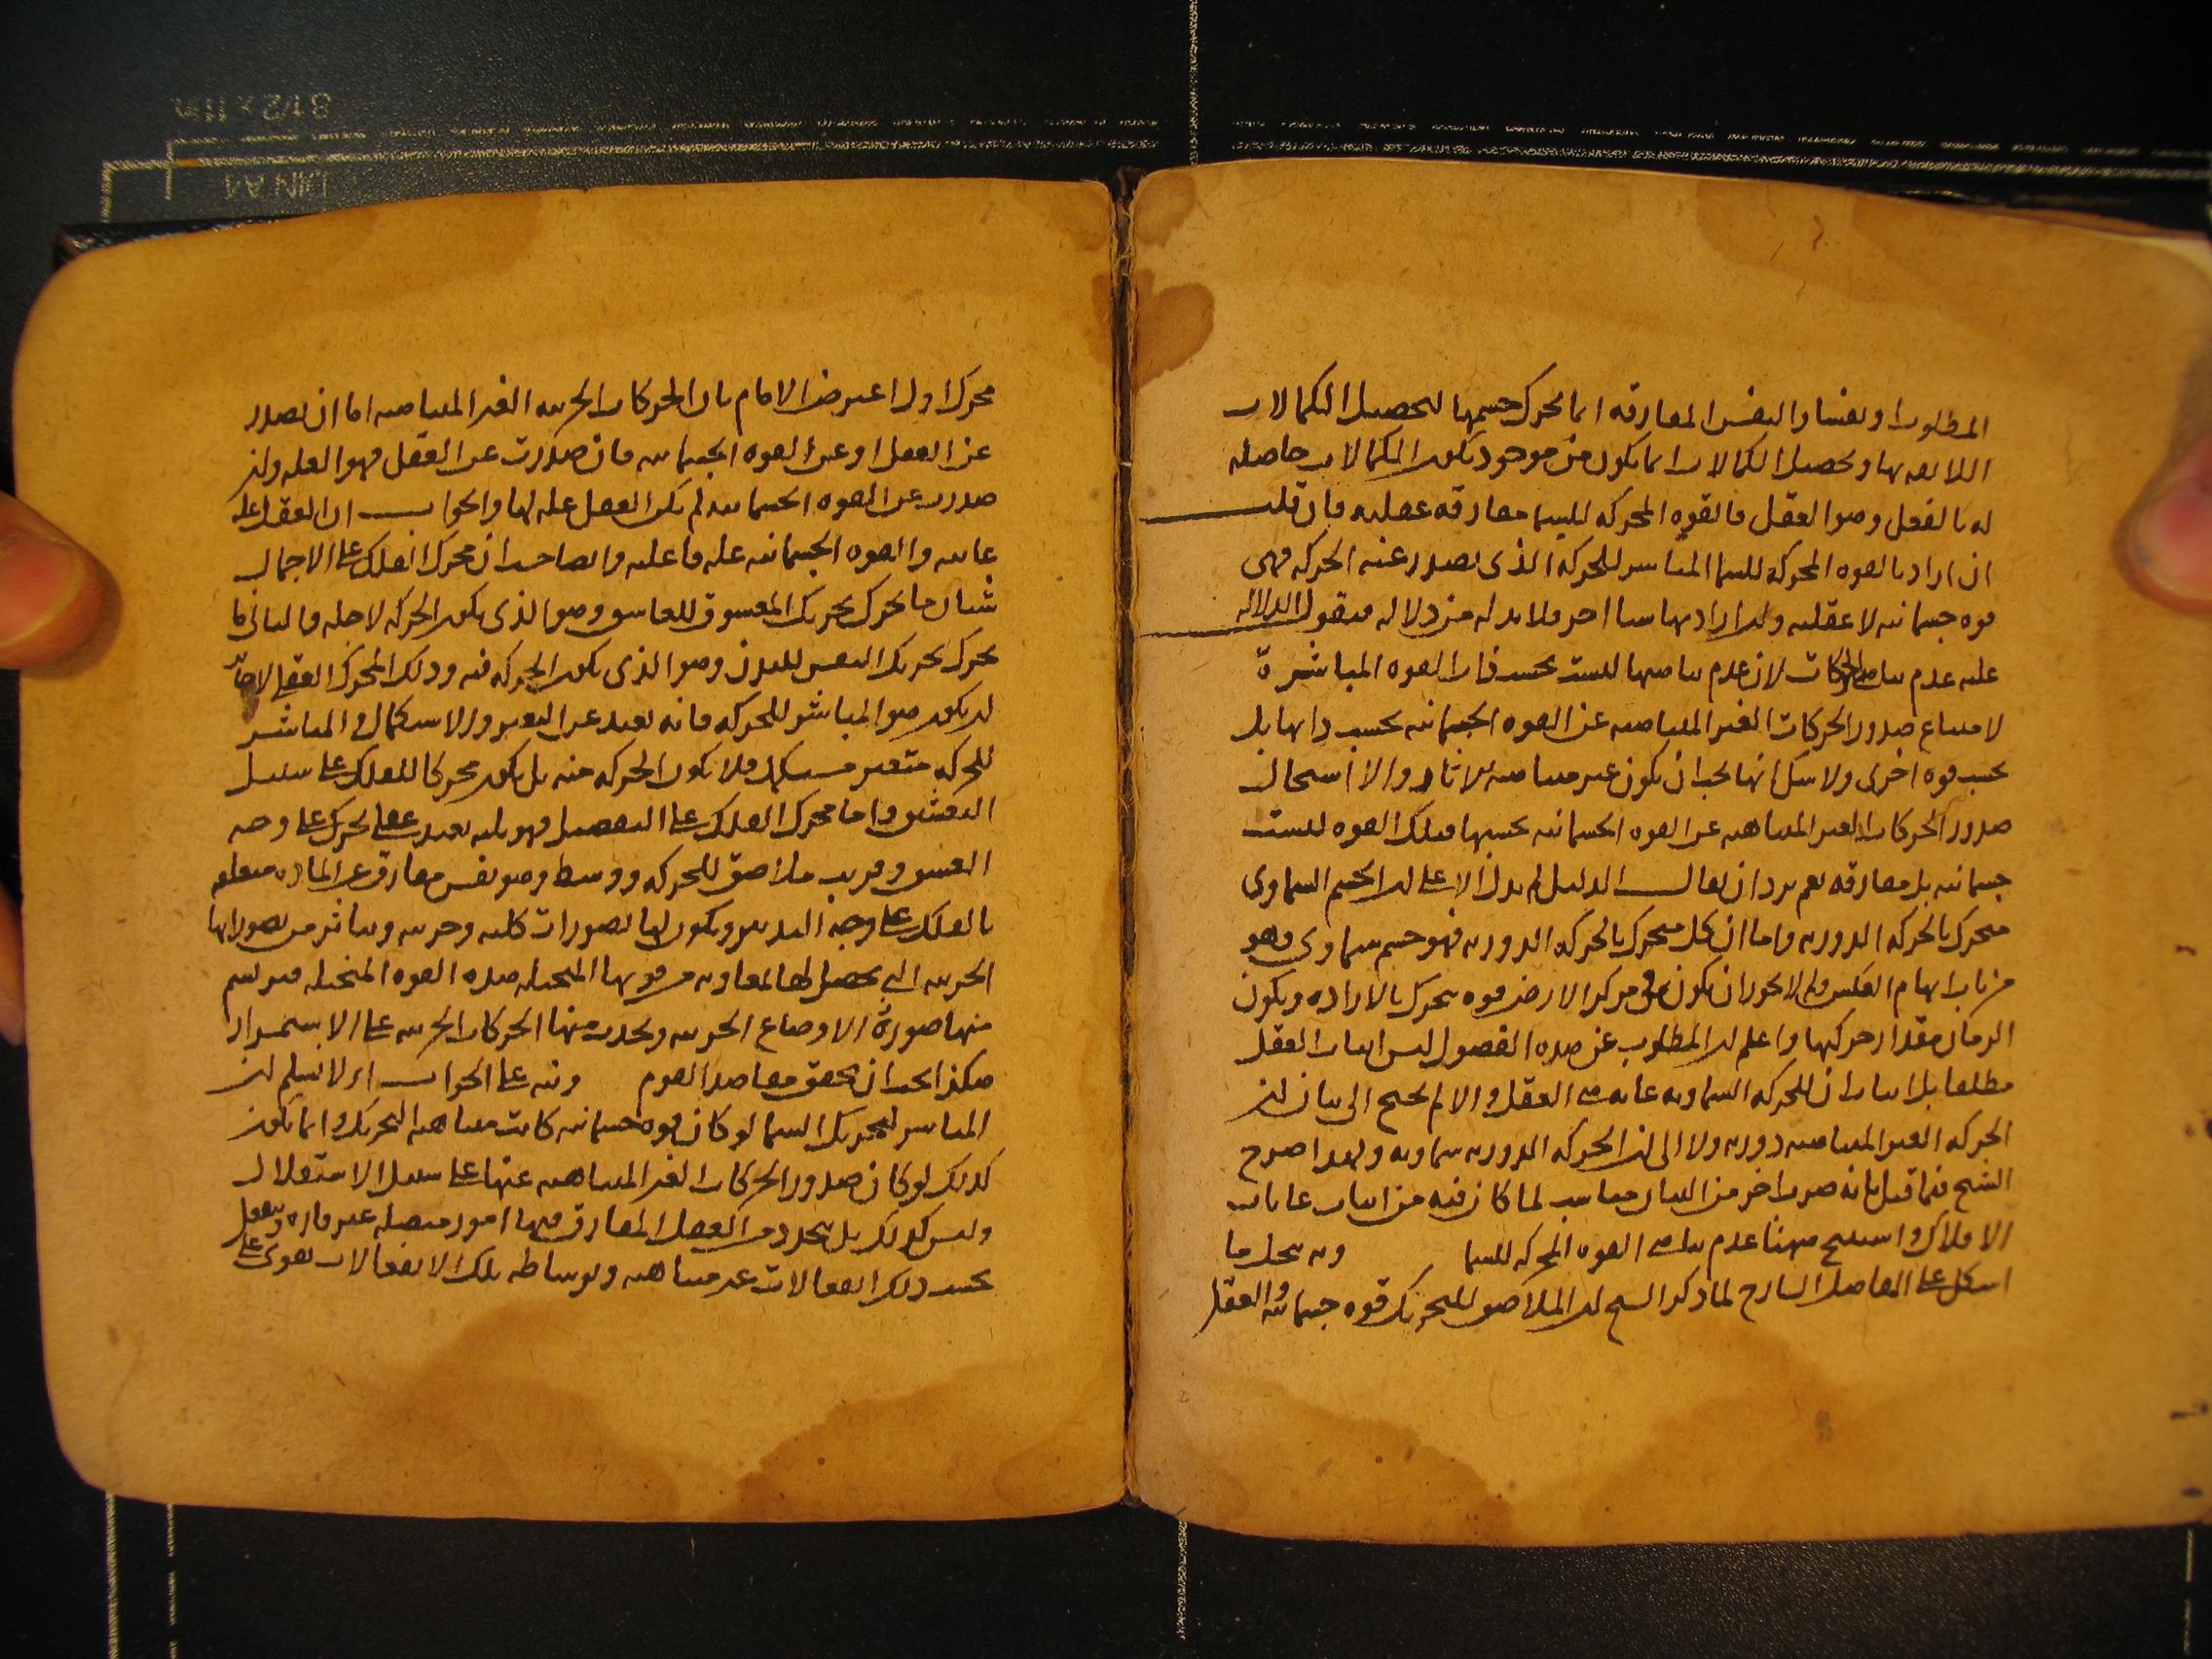 المطلوب او نفسا والنفس المفارقه انما تحرك جسمها لتحصيل الكمالات
اللائقه بها وتحصيل الكمالات انما يكون من موجود تكون الكمالات حاصله
له بالفعل وهو العقل فالقوه المحركه للسما مفارقه عقليه فان قلت
ان اراد بالقوه المحركه للسما المباشر للحركه الذى تصدر عنه الحركه فهى
قوه جسمانيه لا عقليه وان اراد بها سببا اخر فلا بد له من دلاله فنقول الدلاله
عليه عدم تناهى الحركات لان عدم تناهيها ليست بحسب ذات القوه المباشرة
لامتناع صدور الحركات الغير المتناهيه عن القوه الجسمانيه بحسب ذاتها بل
بحسب قوه اخرى ولا شك انها يجب ان يكون غير متناهيه الاثار والا استحال
صدور الحركات الغير المتناهيه عن القوه الجسمانيه بحسبها فتلك القوه ليست
جسمانيه بل مفارقه نعم يرد ان يقال الدليل لم يدل الا على ان الجسم السماوى
متحرك بالحركه الدوريه واما ان كل متحرك بالحركه الدوريه فهو جسم سماوى فهو
من باب ايهام العكس فلم لا يجوز ان يكون فى مركز الارض قوه تتحرك بالاراده ويكون
الزمان مقدار حركتها واعلم ان المطلوب عن هذه الفصول ليس اثبات العقل
مطلقا بل اثبات ان للحركه السماويه غايه هى العقل والا لم يحتج الى بيان ان
الحركه الغير المتناهيه دوريه ولا الى ان الحركه الدوريه سماويه ولهذا صرح
الشيخ فيما قبل بانه ضرب اخر من البيان مناسب لما كان فيه من اثبات غايات
الافلاك واستنتج ههنا عدم تناهى القوه المحركه للسما وبه ينحل ما
اشكل على الفاضل الشارح لما ذكر الشيخ ان الملاصق للتحريك قوه جسمانيه والعقل
محرك اول اعترض الامام بان الحركات الجزئيه الغير المتناهيه اما ان تصدر
عن العقل او عن القوه الجسمانيه فان صدرت عن العقل فهو العله وان
صدرت عن القوه الجسمانيه لم يكن العقل عله لها والجواب ان العقل عله
غائيه والقوه الجسمانيه عله فاعليه وايضا حيث ان محرك الفلك على الاجمال
شيان ما يحرك تحريك المعشوق للعاشق وهو الذى يكون الحركه لاجله والثانى ما
يحرك تحريك النفس للبدن وهو الذى يكون الحركه فيه وذلك المحرك العقلى لا جائز
ان يكون هو المباشر للحركه فانه بعيد عن التغير والاستكمال والمباشر
للحركه متغير مستكمل فلا يكون الحركه منه بل يكون محركا للفلك على سبيل
التعشق واما محرك الفلك على التفصيل فهو ثلثه بعيد عقلى يحرك على وجه
العشق وقريب ملاصق للحركه ووسط وهو نفس مفارق عن الماده متعلقه
بالفلك على وجه التدبير ويكون لها تصورات كليه وجزئيه ويتاثر من تصوراتها
الجزئيه التى يحصل لها بمعاونه من قوتها المتخيله هذه القوه المتخيله فيرتسم
منها صورة الاوضاع الجزئيه ويحدث منها الحركات الجزئيه على الاستمرار
هكذا يجب ان يحقق مقاصد القوم ونبه على الجواب اى لا نسلم ان
المباشر لتحريك السما لو كان قوه جسمانيه كانت متناهيه التحريك وانما يكون
كذلك لو كان صدور الحركات الغير المتناهيه عنها على سبيل الاستقلال
وليس كذلك بل يتجدد من العقل المفارق فيها امور متصله غير قاره وينفعل
بحسب ذلك انفعالات غير متناهيه وبوساطه تلك الانفعالات تقوى على